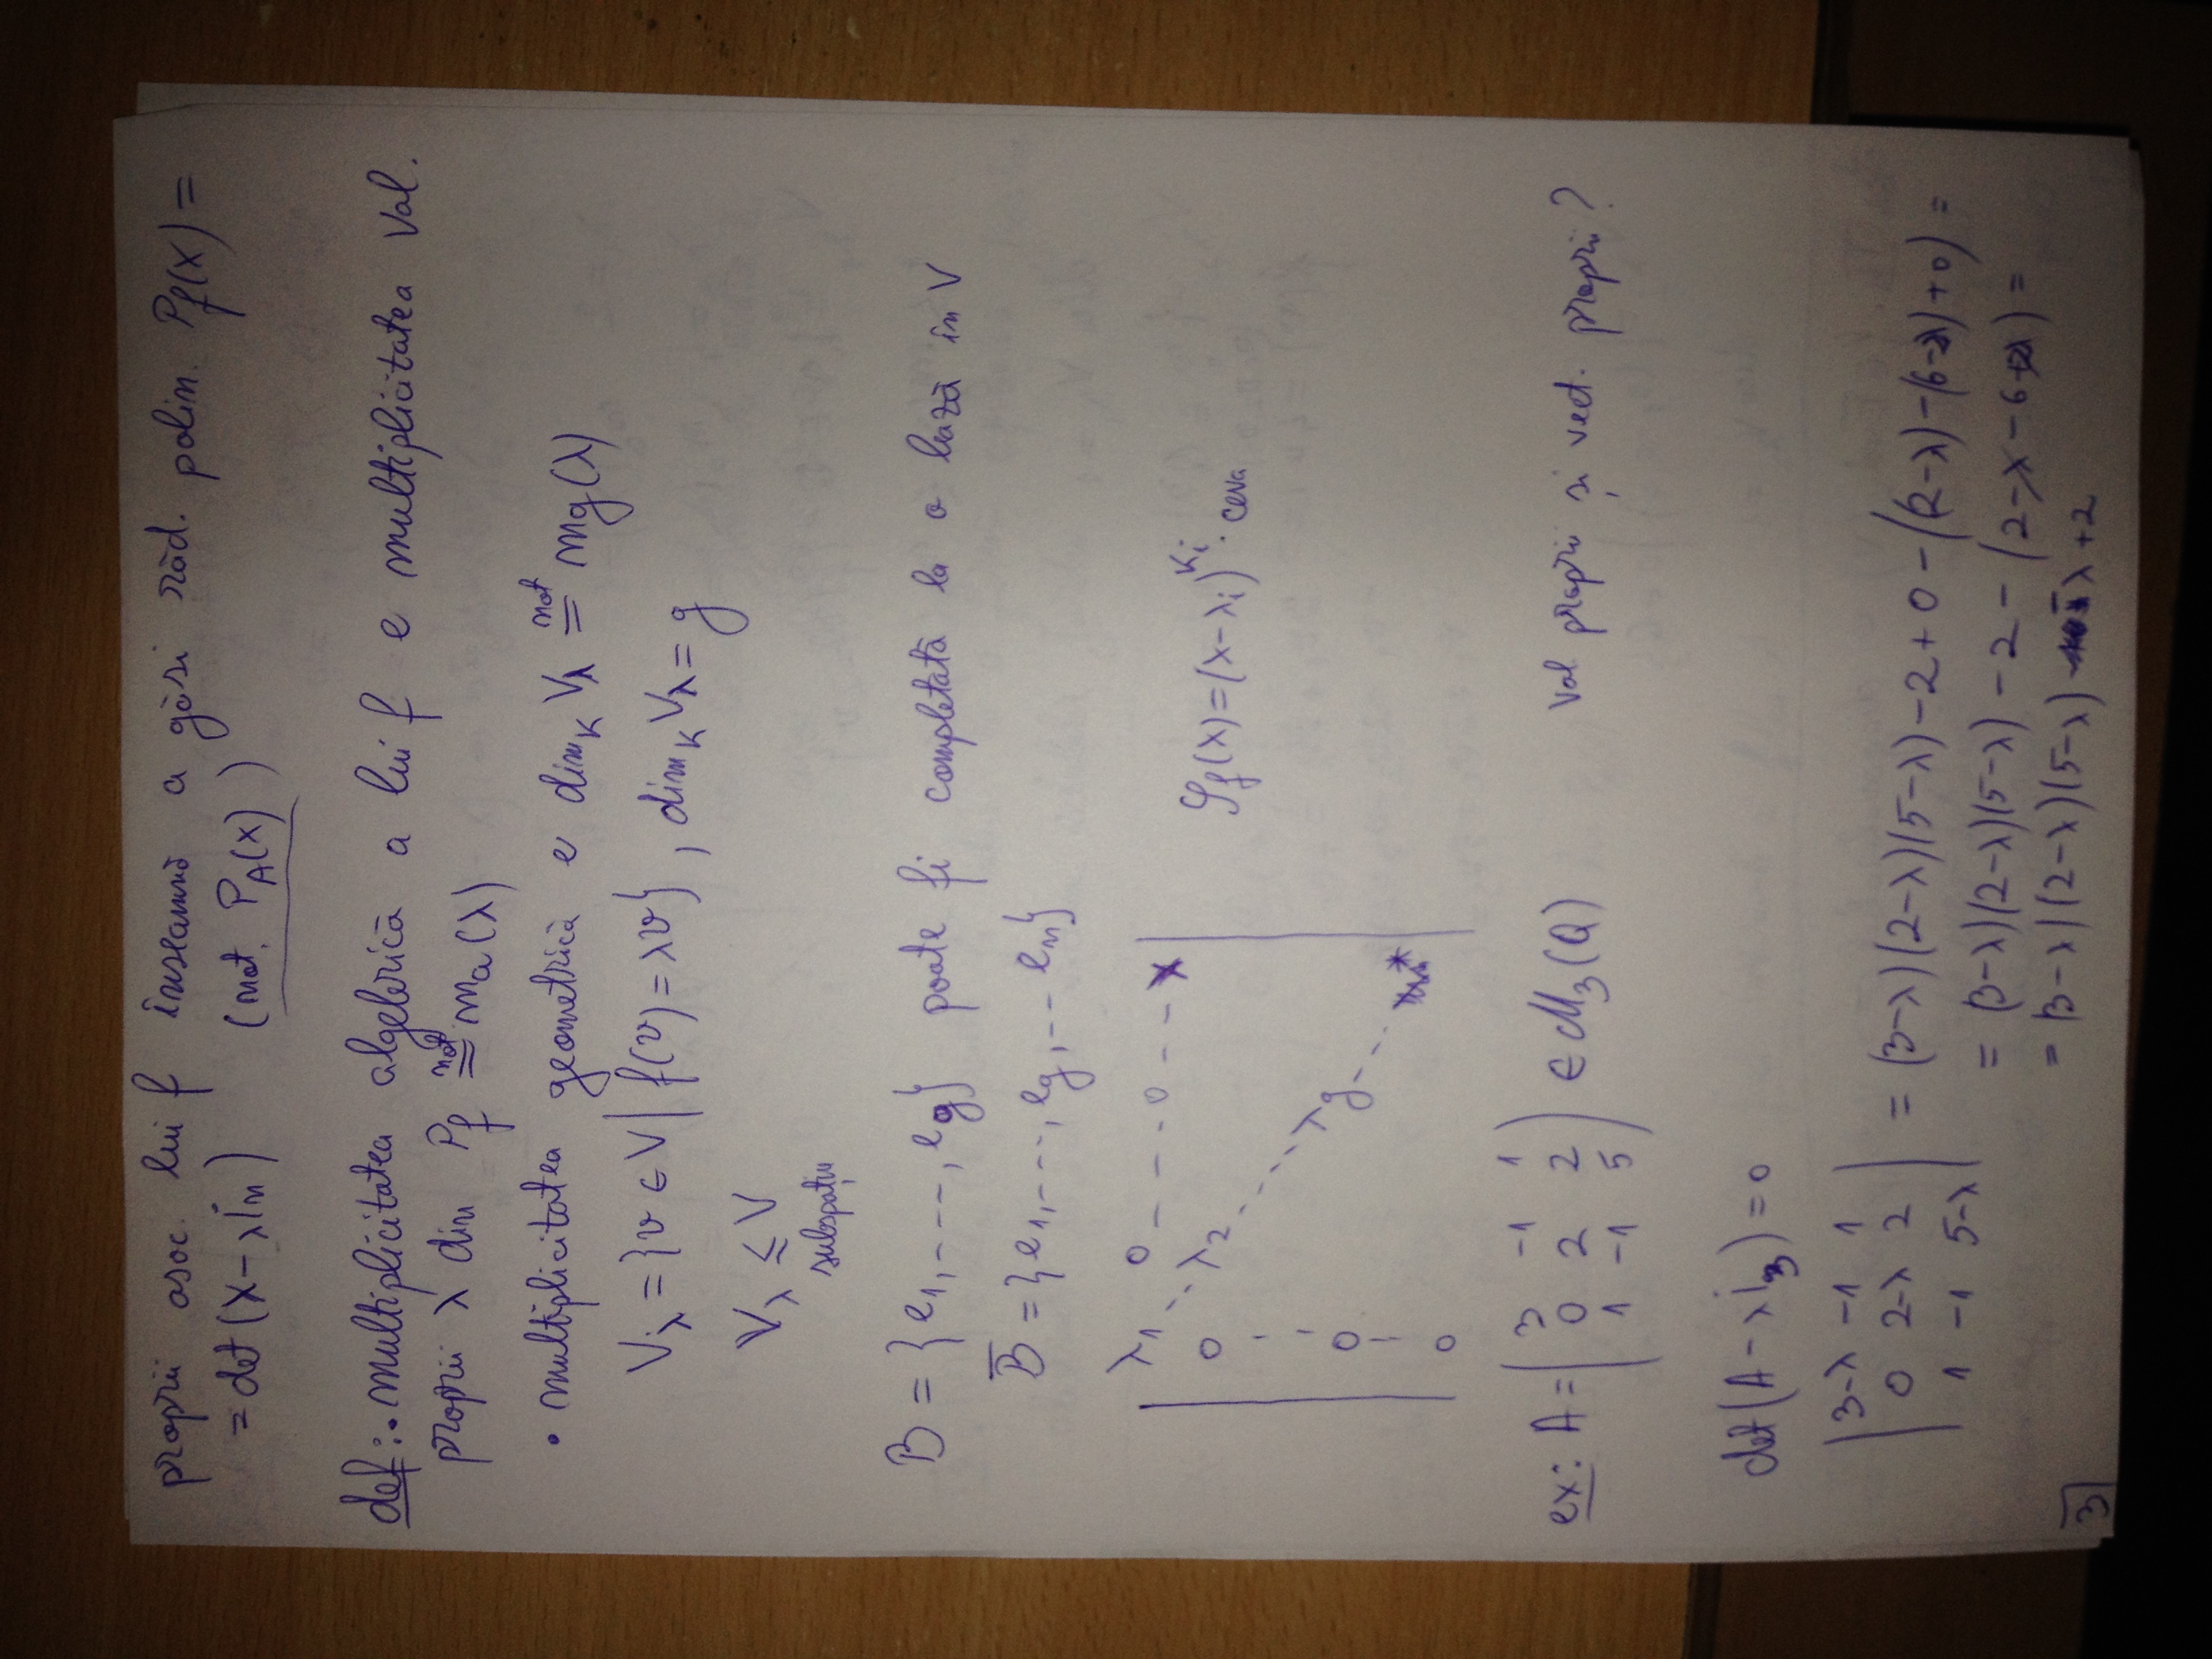 proprii asoc. lui f înseamnă a găsi răd. polin. Pf(X) =
= det(X-λIn) (not. PA(X))
def: • multiplicitatea algebrică a lui f e multiplicitatea val.
proprii λ din Pf not= ma(λ)
• multiplicitatea geometrică e dimK Vλ not= mg(λ)
Vλ = {v ∈ V | f(v) = λv}, dimK Vλ = g
Vλ ≤ V
subspațiu
B = {e1, ---, eg} poate fi completată la o bază în V
B̅ = {e1, ---, eg, -- en}
λ1 0 - - - 0 - - x
0 λ2
λg
0
0 *
𝒫f(X) = (X-λi)^Ki · ceva
ex: A = ( 3 -1 1
0 2 2
1 -1 5 ) ∈ M3(Q) val proprii și vect. proprii?
det(A - λI3) = 0
| 3-λ -1 1 |
| 0 2-λ 2 | = (3-λ)(2-λ)(5-λ) - 2 + 0 - ((2-λ) - (6-2λ) + 0) =
| 1 -1 5-λ |
= (3-λ)(2-λ)(5-λ) - 2 - (2-λ-6+2λ) =
= (3-λ)(2-λ)(5-λ) - λ + 2
3